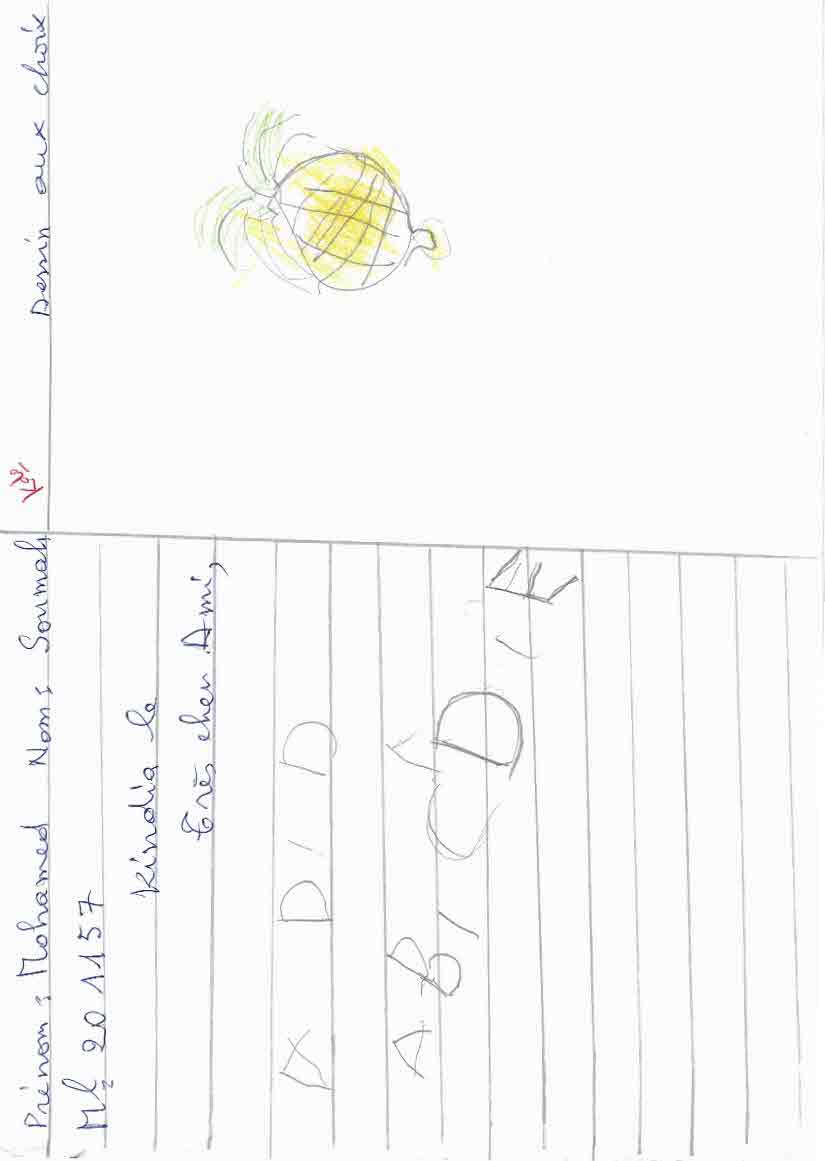 Prénom: Mohamed Nom: Soumah
Mle 201157
Kindia le
Très cher Ami,
A D / D
A B / C D / E
Dessin aux choix